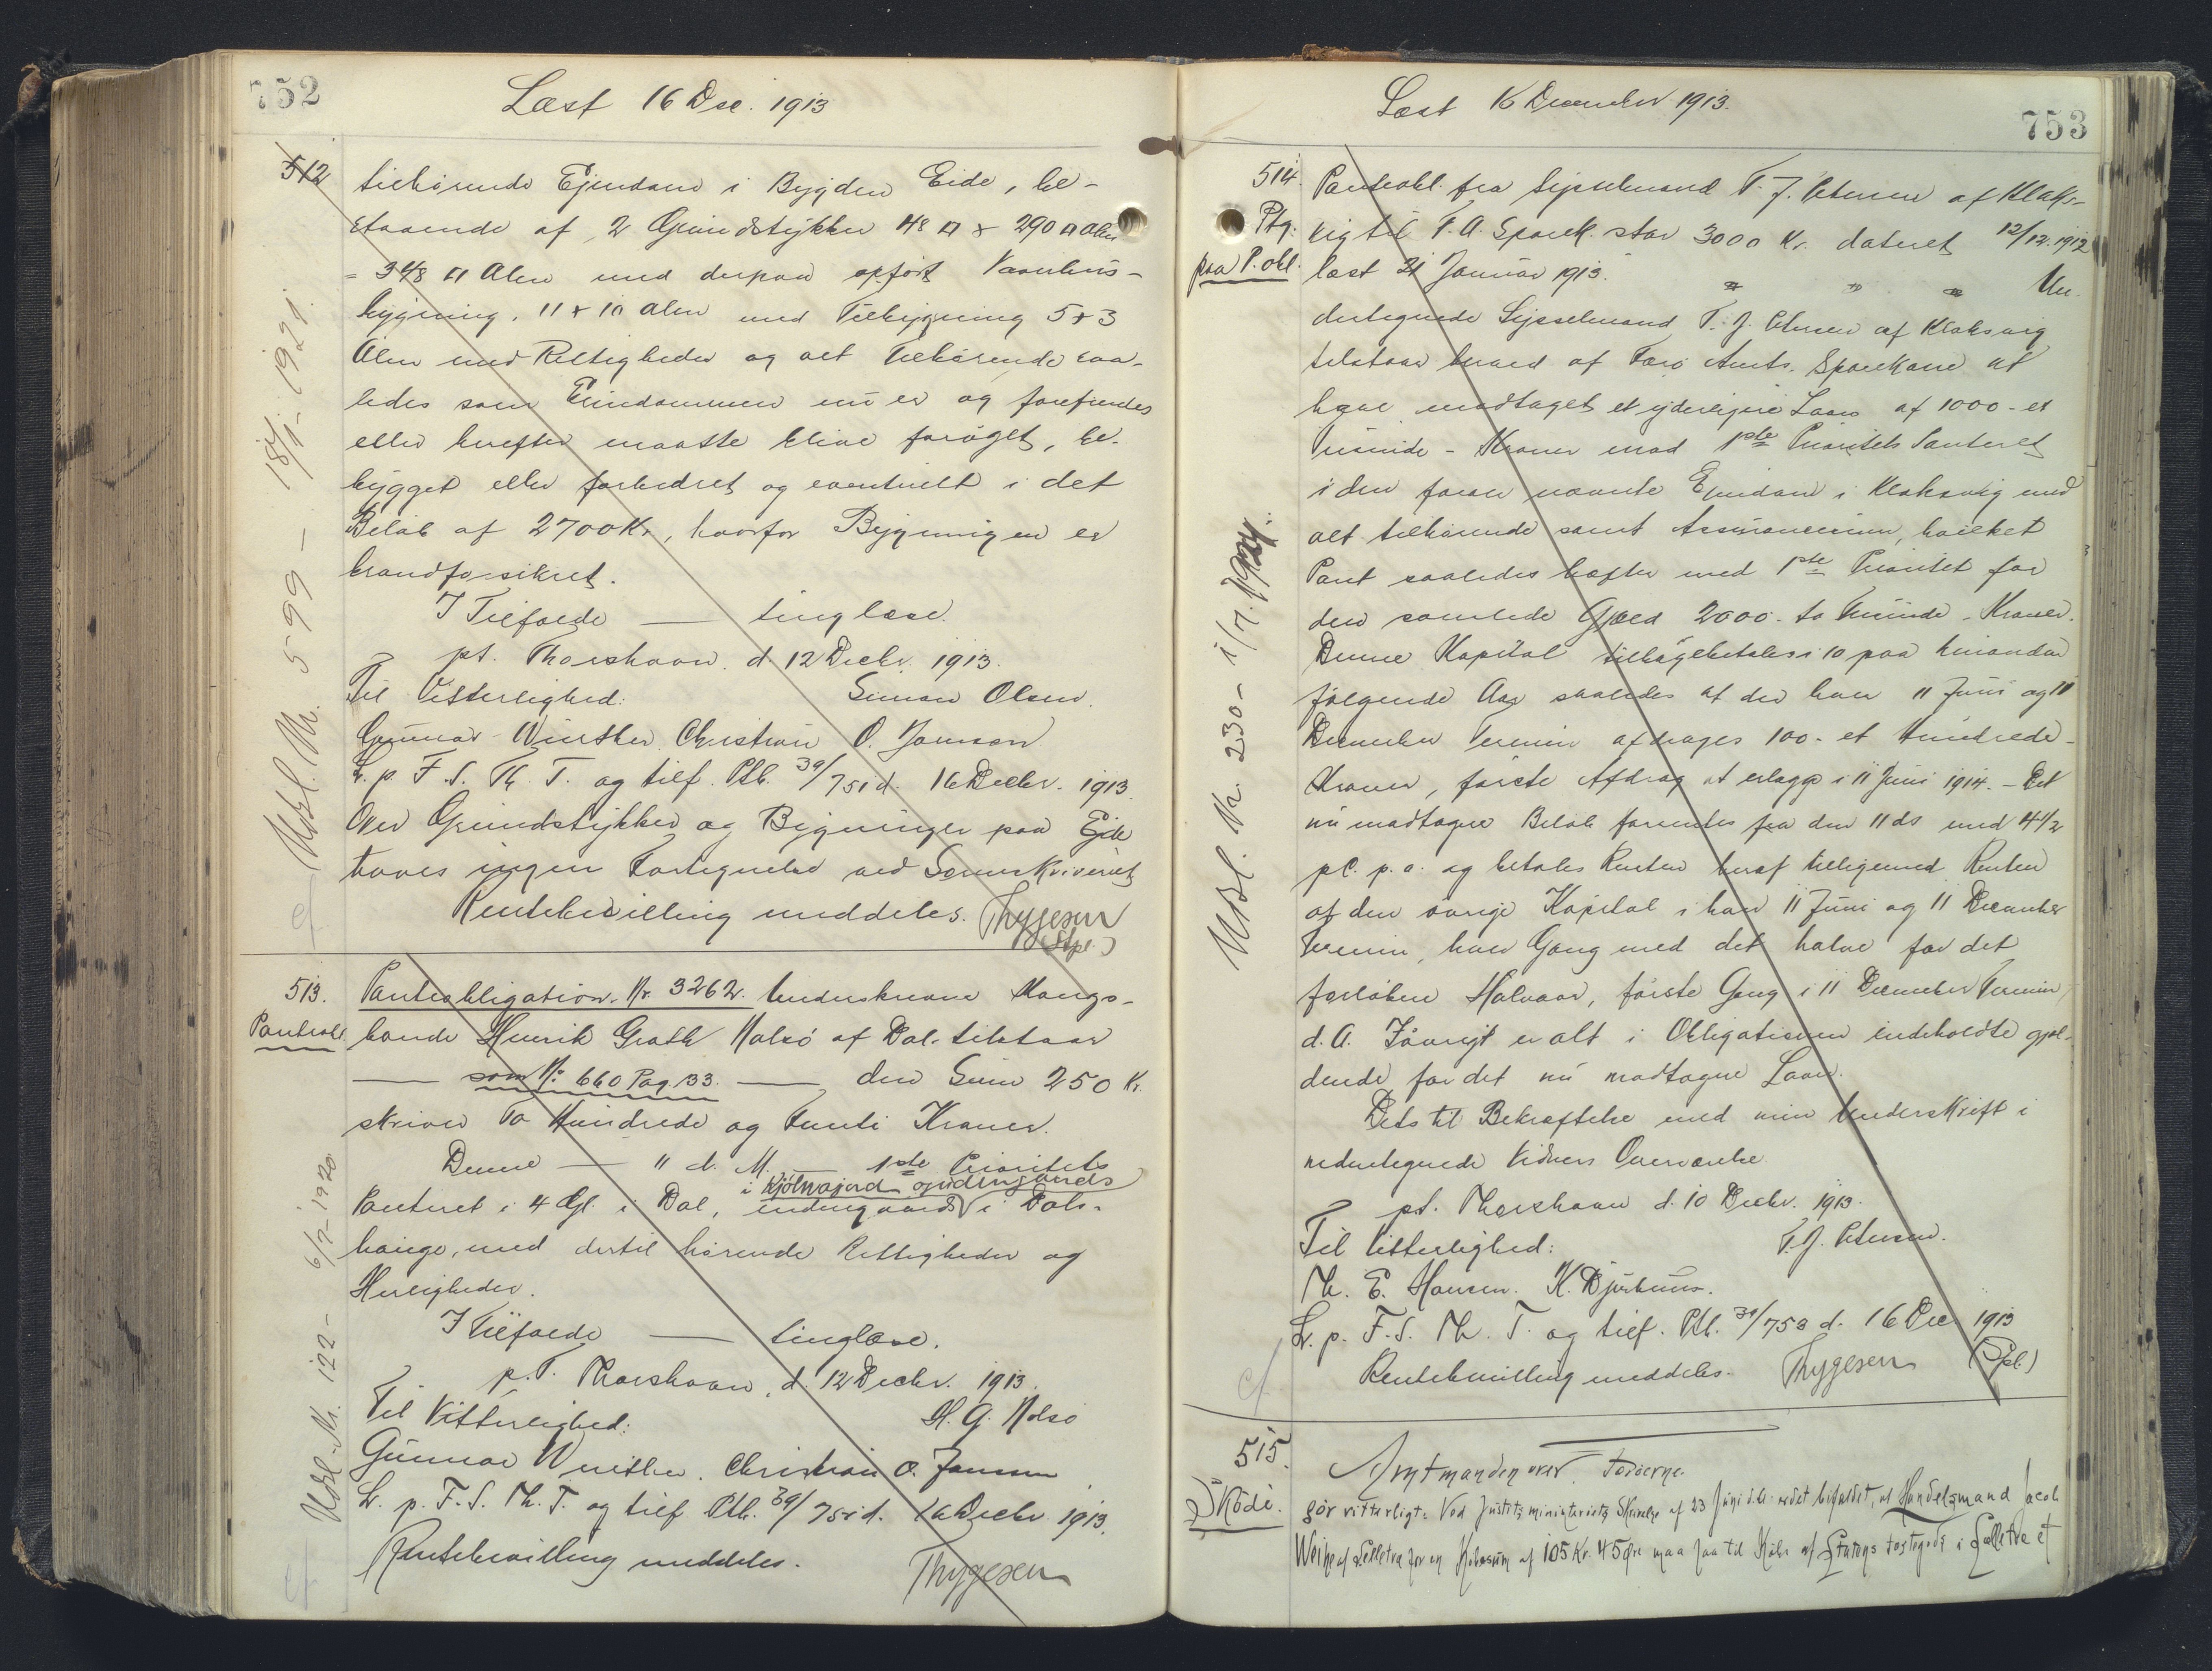 752
Læst 16 Dec. 1913
512
tilhørende Ejendom i Bygden Eide, be-
staaende af 2 Grundstykker 48 □ + 290 □ Alen
= 348 □ Alen med derpaa opført Vaanhus-
bygning, 11 + 10 Alen med Tilbygning 5 + 3
Alen med Rettigheder og alt Tilhørende saa-
ledes som Ejendommen nu er og forefindes
eller herefter maatte blive forøget, be-
bygget eller forbedret og eventuelt i det
Beløb af 2700 Kr, hvorfor Bygningen er
brandforsikret.
I Tilfælde — tinglæse.
pt. Thorshavn d. 12 Decbr. 1913.
Til Vitterlighed: Simon Olsen.
Gunnar Winther Christian O. Joensen
L. p. F. S. Th. T. og tilf. Ptb. 39/751 d. 16 Decbr. 1913.
Over Grundstykker og Bygninger paa Ejde
haves ingen Fortegnelse ved Sorenskriveriet
Rentebevilling meddeles. Thygesen
(Stpl.)
Udsl. Nr. 599 – 18/1 – 1921.
cf
513.
Panteobl.
Panteobligation. Nr. 3262. Underskrevne Kongs-
bonde Henrik Grath Nolsø af Dal tilstaar
— som No 660 Pag. 33. — den Sum 250 Kr.
skriver To Hundrede og Femti Kroner.
Denne — 11 d. M. — 1ste Prioritets
i Kjølnajord og udengaards
Panteret i 4 Gl. i Dal, indengaards i Dals-
hauge, med dertil hørende Rettigheder og
Herligheder.
I Tilfælde — tinglæse.
p.T. Thorshavn, d. 12 Decbr. 1913.
Til Vitterlighed: H. G. Nolsø
Gunnar Winther. Christian O. Joensen
L. p. F. S. Th. T. og tilf. Ptb. 39/751 d. 16 Decbr. 1913.
Rentebevilling meddeles. Thygesen
Udsl. Nr. 122 – 6/7 – 1920.
cf
753
Læst 16 December 1913.
514.
Ptg.
paa P. obl.
Panteobl. fra Sysselmand T. J. Petersen af Klaks-
vig til F. A. Sparek. stor 3000 Kr. dateret 12/12. 1912
læst 21 Januar 1913. Un-
dertegnede Sysselmand T. J. Petersen af Klaksvig
tilstaar herved af Færø Amts. Sparekasse at
have modtaget et yderligere Laan af 1000 - et
Tusinde - Kroner mod 1ste Prioritets Panteret
i den foran nævnte Ejendom i Klaksvig med
alt tilhørende samt Assurancesum, hvilket
Pant saaledes hæfter med 1ste Prioritet for
den samlede Gjæld 2000. to Tusinde - Kroner.
Denne Kapital tilbagebetales i 10 paa hinanden
følgende Aar saaledes at der hver 11 Juni og 11
December Termin afdrages 100 - et Hundrede -
Kroner, første Afdrag at erlægge i 11 Juni 1914. – Det
nu modtagne Beløb forrentes fra den 11 ds med 4½
pC. p. a. og betales Renten heraf tilligemed Renten
af den øvrige Kapital i hver 11 Juni og 11 December
Termin, hver Gang med det halve for det
forløbne Halvaar, første Gang i 11 December Termin
d. A. Iøvrigt er alt i Obligationen indeholdte gjæl-
dende for det nu modtagne Laan.
Dets til Bekræftelse med min Underskrift i
nedentegnede Vidners Overværelse.
pt. Thorshavn d. 10 Decbr. 1913.
Til Vitterlighed: T. J. Petersen.
Th. E. Hansen. K. Djurhuus.
L. p. F. S. Th. T. og tilf. Ptb. 39/753 d. 16 Dec 1913
Rentebevilling meddeles. Thygesen (Stpl.)
Udsl. Nr. 230 – 1/7. 1924.
cf
515.
Skøde.
Amtmanden over Færøerne
gør vitterligt: Ved Justitsministeriets Skrivelse af 23 Juni d.A. er det bifaldet, at Handelsmand Jacob
Weihe af Selletræ for en Købesum af 105 Kr. 45 Øre maa faa til Købs af Statens Fæstegods i Selletræ et